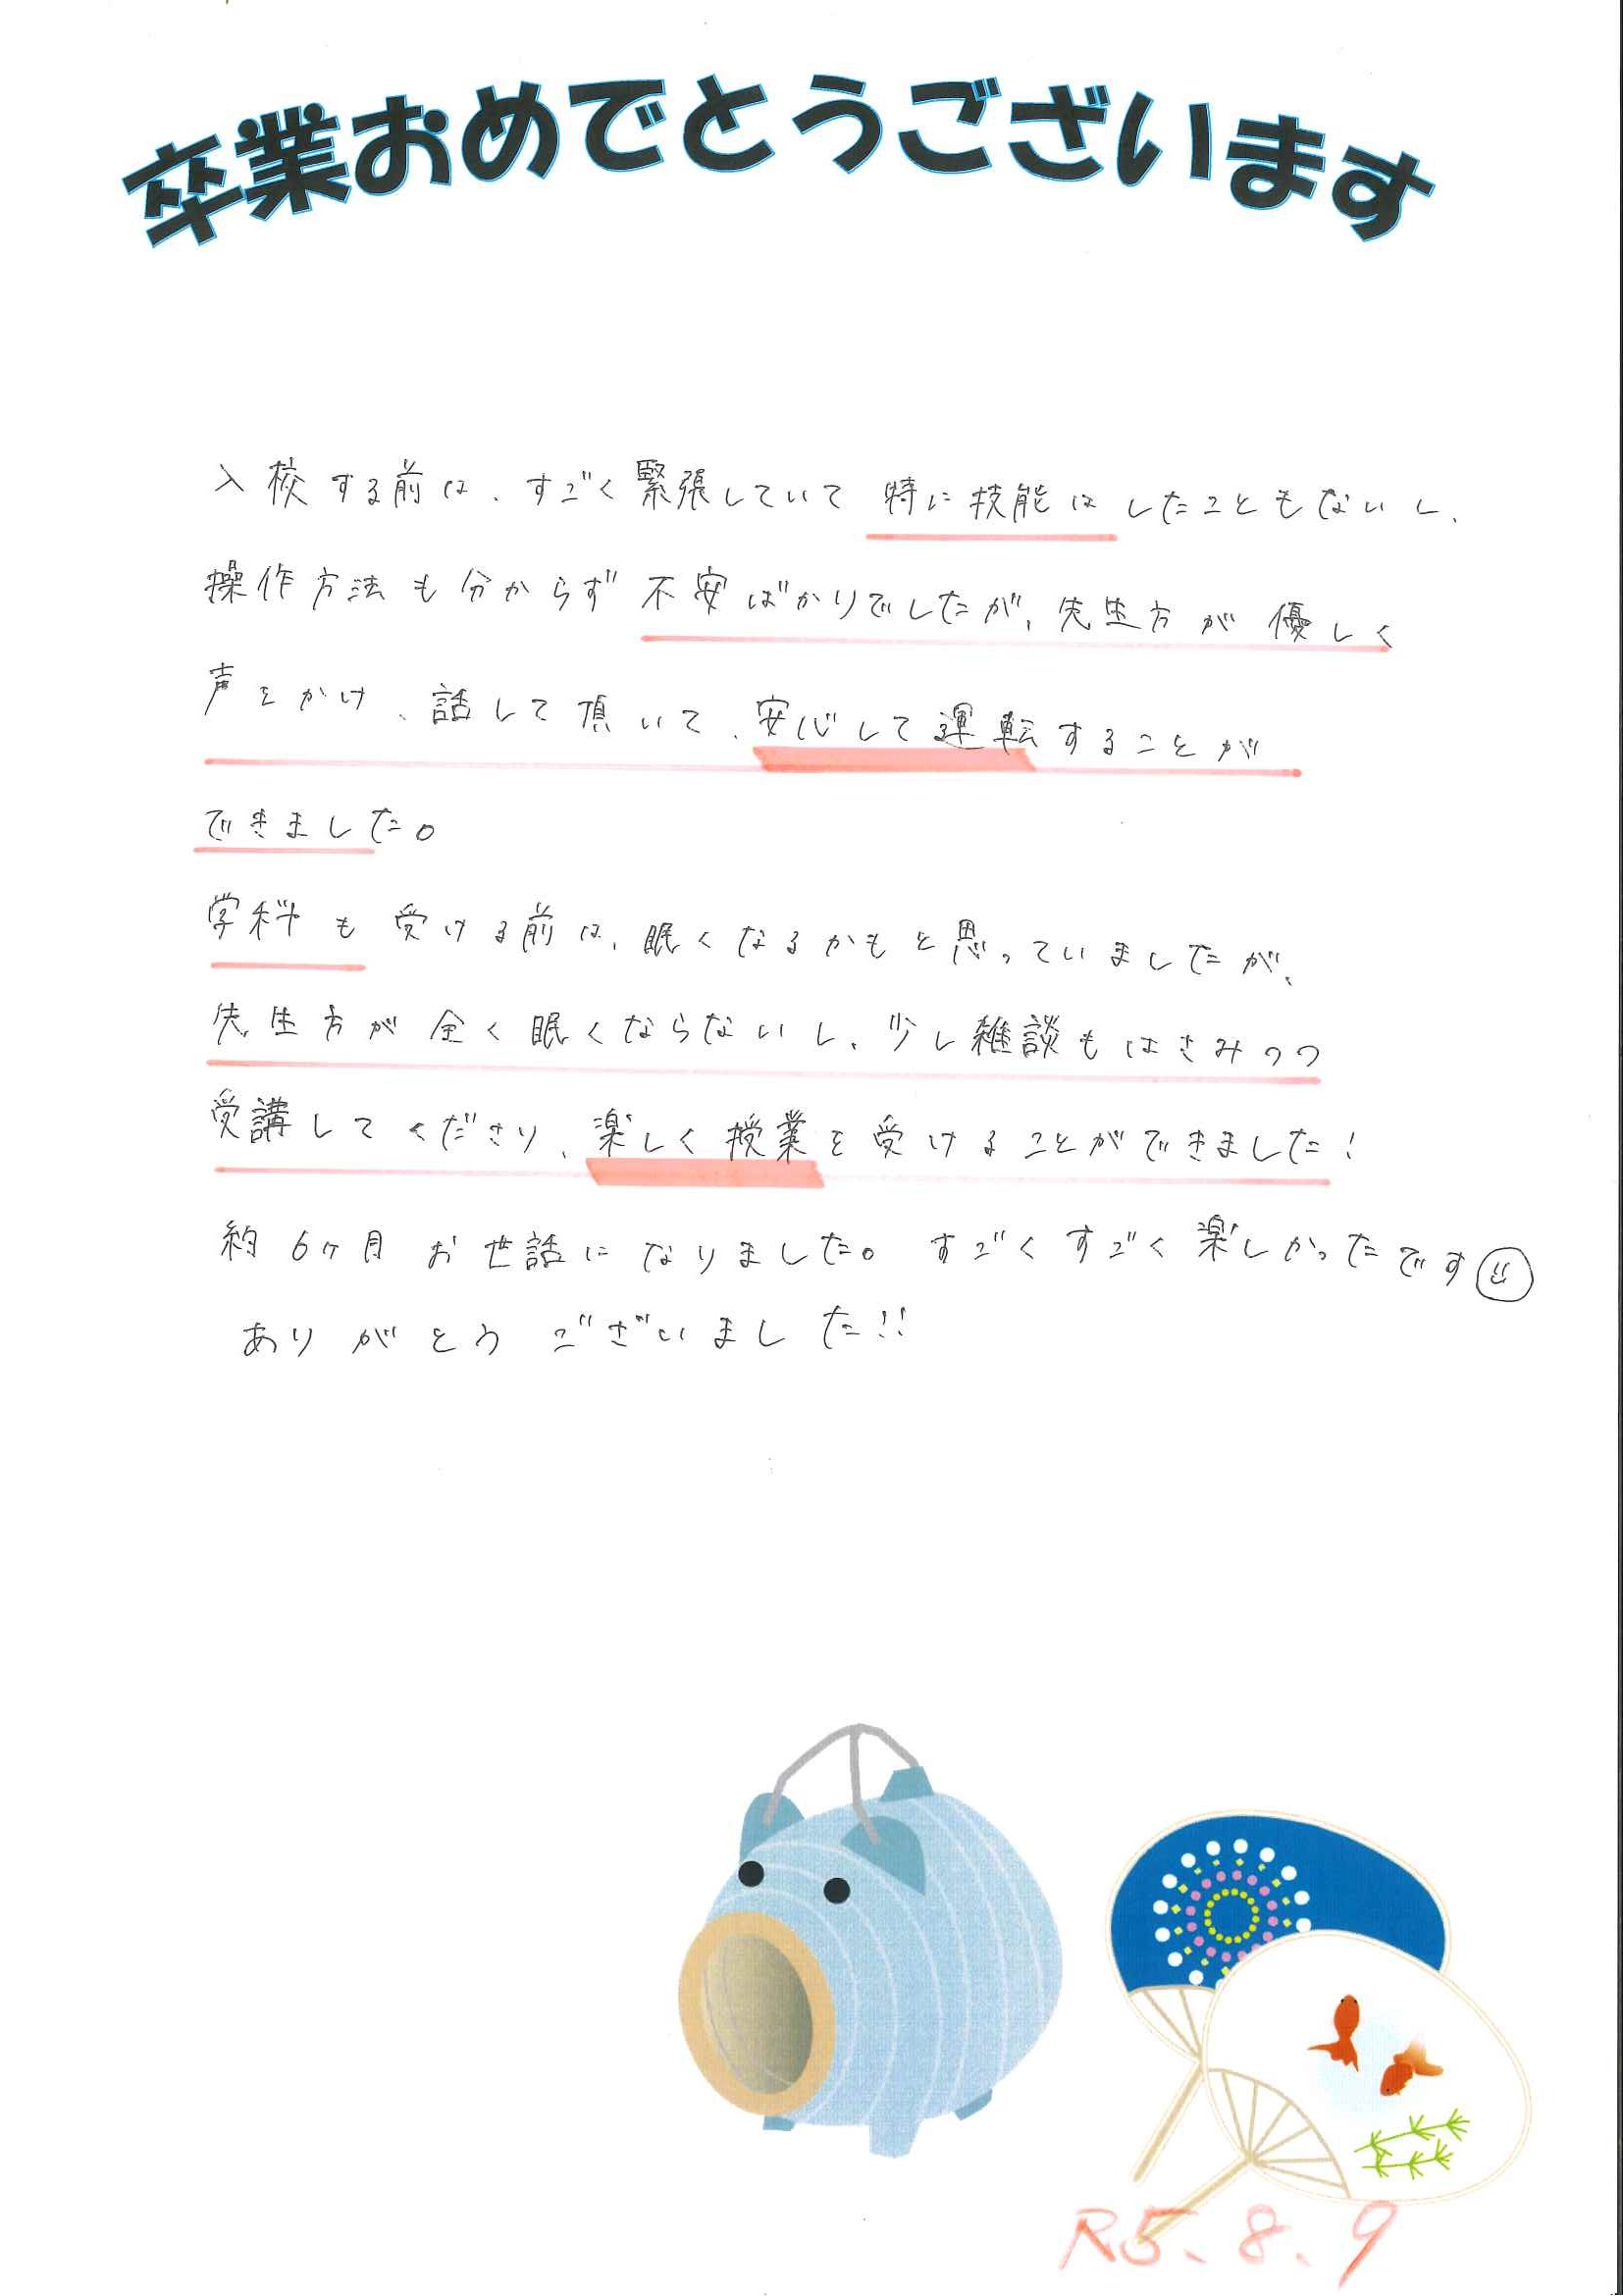 卒業おめでとうございます
入校する前は、すごく緊張していて 特に技能は したこともないし、
操作方法も分からず 不安ばかりでしたが、先生方が優しく
声をかけ、話して頂いて、安心して運転することが
できました。
学科も受ける前は、眠くなるかもと思っていましたが、
先生方が全く眠くならないし、少し雑談もはさみつつ
受講してくださり、楽しく授業を受けることができました！
約6ヶ月お世話になりました。すごくすごく楽しかったです
ありがとうございました!!
R5.8.9